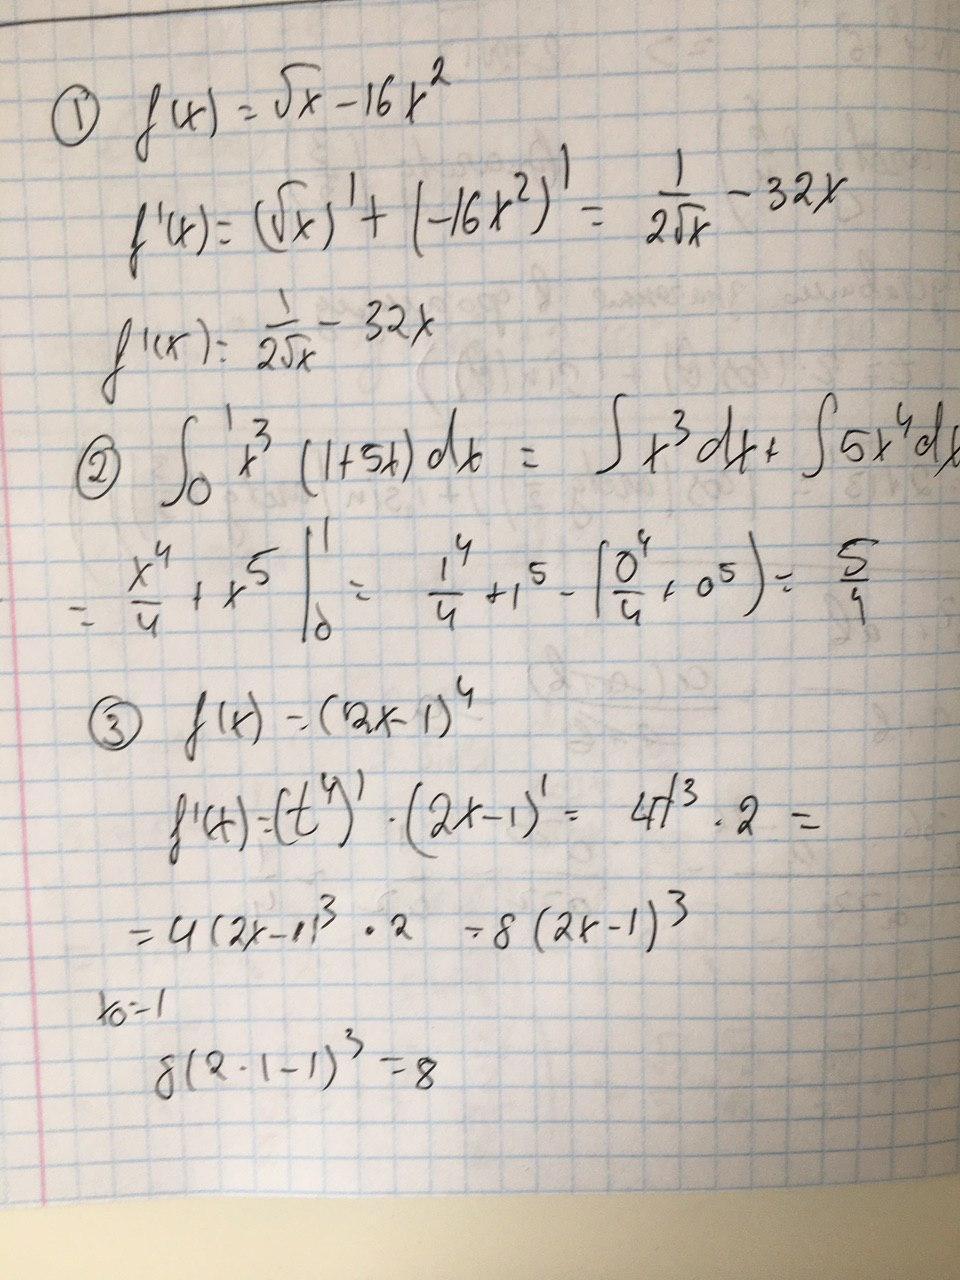 ① f(x) = √x - 16x²
f'(x) = (√x)' + (-16x²)' = 1/(2√x) - 32x
f'(x) = 1/(2√x) - 32x
② ∫₀¹ x³ (1+5x) dx = ∫ x³dx + ∫ 5x⁴dx
= x⁴/4 + x⁵ |₀¹ = 1⁴/4 + 1⁵ - (0⁴/4 + 0⁵) = 5/4
③ f(x) = (2x-1)⁴
f'(x) = (t⁴)' · (2x-1)' = 4t³ · 2 =
= 4(2x-1)³ · 2 = 8(2x-1)³
x₀=1
8(2·1-1)³ = 8